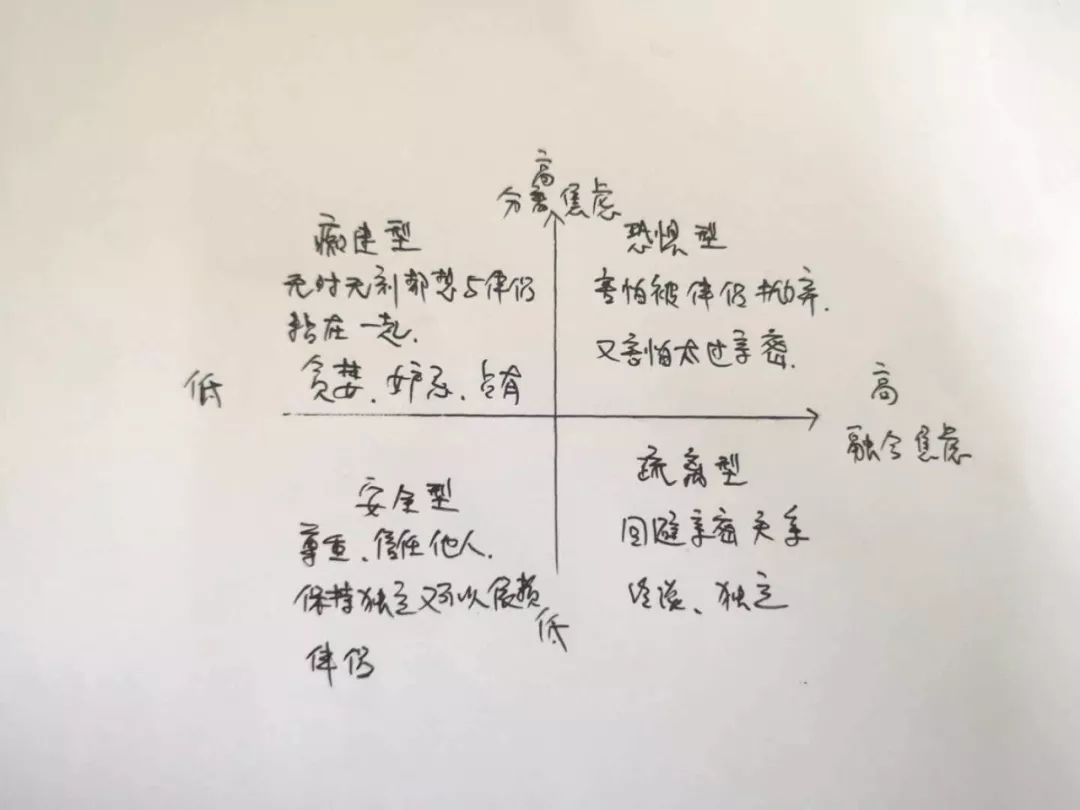 高
分离焦虑
痴迷型
无时无刻都想与伴侣
粘在一起.
贪婪、妒忌、占有
恐惧型
害怕被伴侣抛弃.
又害怕太过亲密.
低
高
融合焦虑
安全型
尊重、信任他人.
保持独立又可以依赖
伴侣
低
疏离型
回避亲密关系
、独立